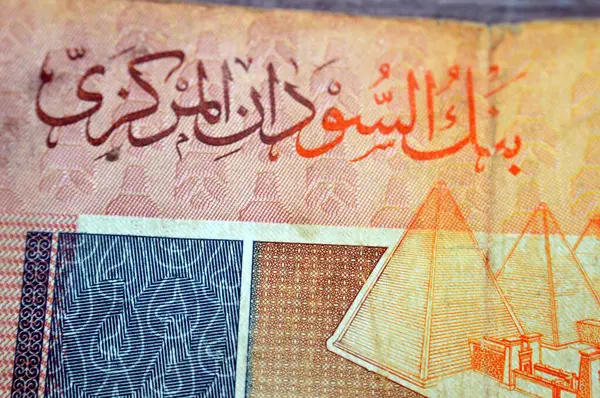 بنك السودان المركزي